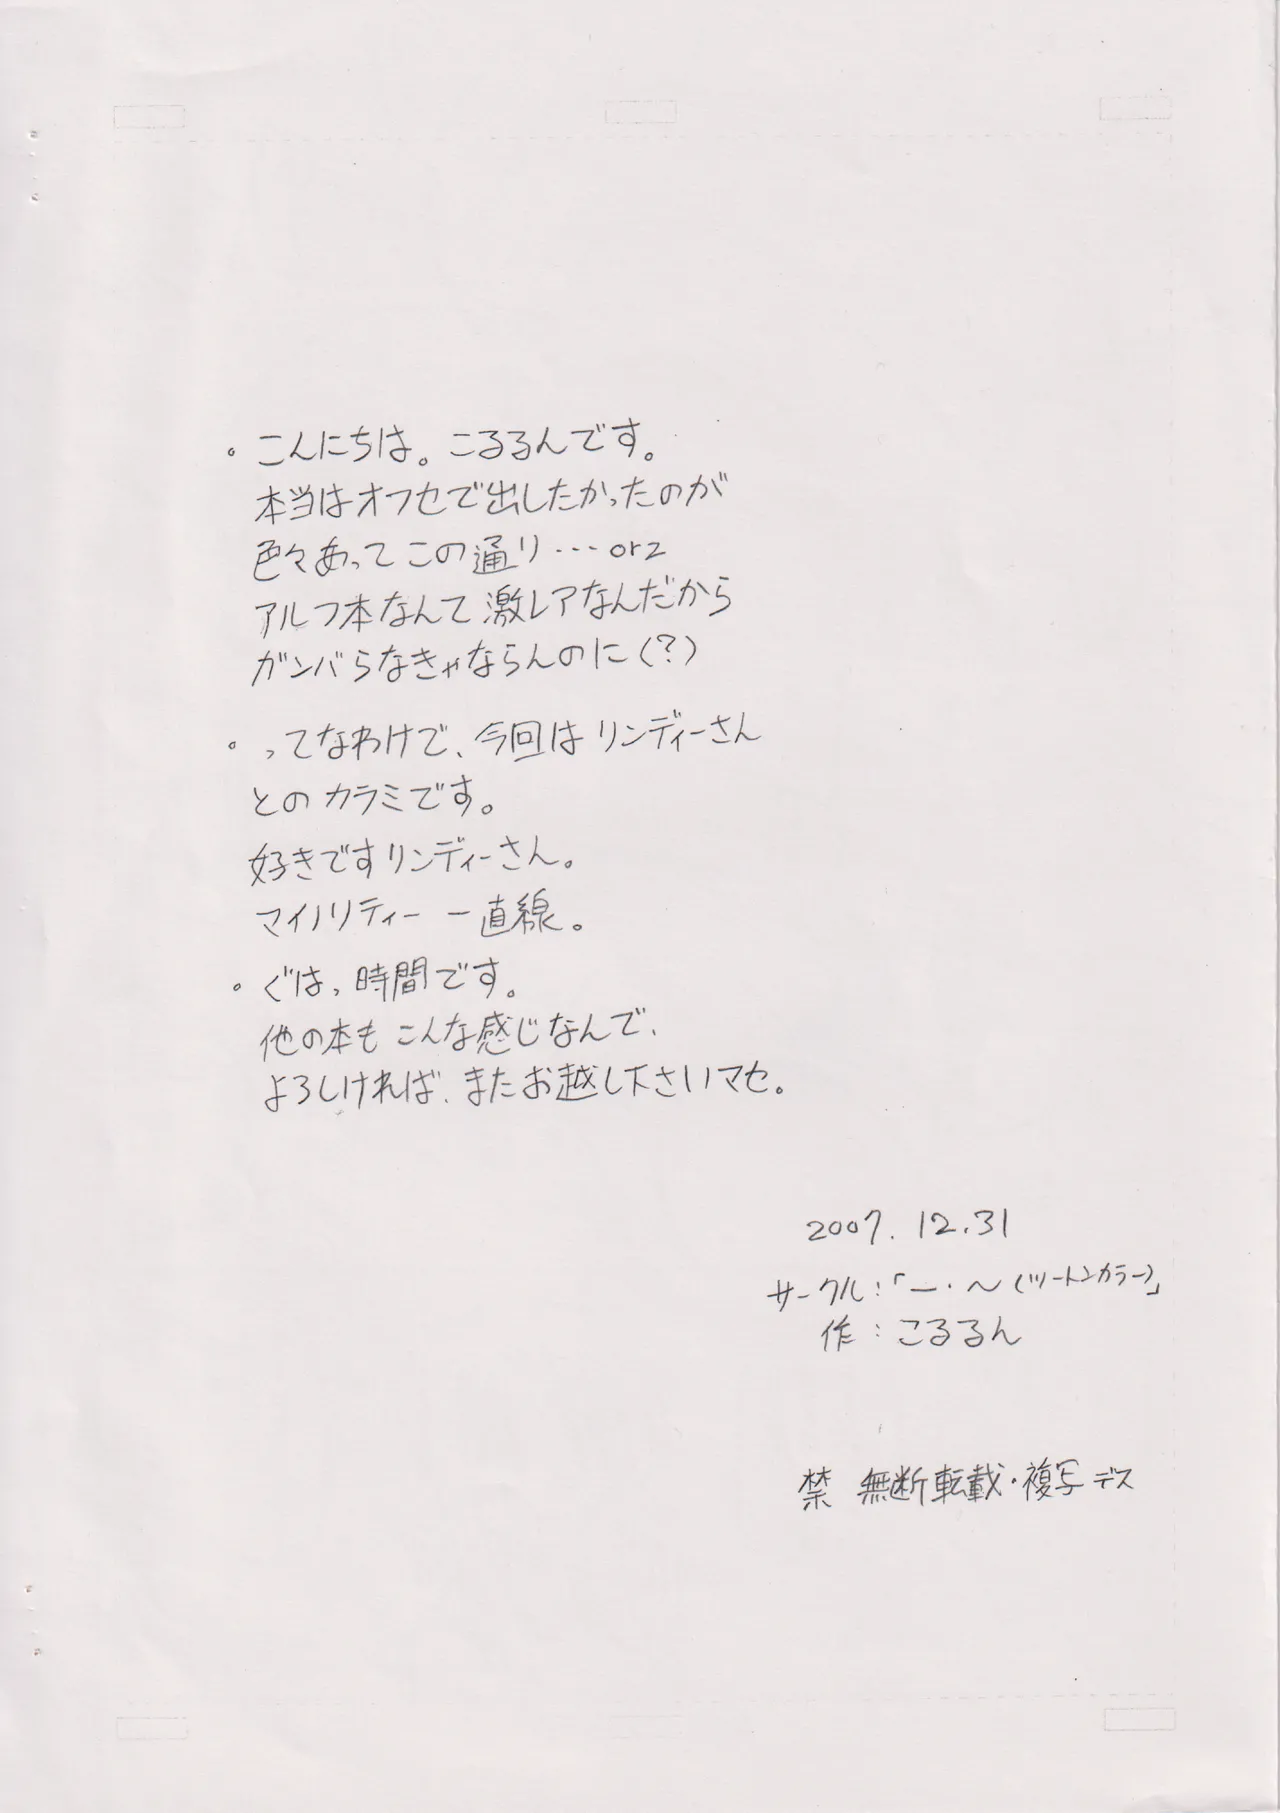 。こんにちは。こるるんです。
本当はオフセで出したかったのが
色々あってこの通り…orz
アルフ本なんて激レアなんだから
ガンバらなきゃならんのに(?)
。ってなわけで、今回はリンディーさん
とのカラミです。
好きですリンディーさん。
マイノリティー 一直線。
。ぐはっ、時間です。
他の本もこんな感じなんで、
よろしければ、またお越し下さいマセ。
2007.12.31
サークル:「ー・〜(ツートンカラー)」
作:こるるん
禁 無断転載・複写デス